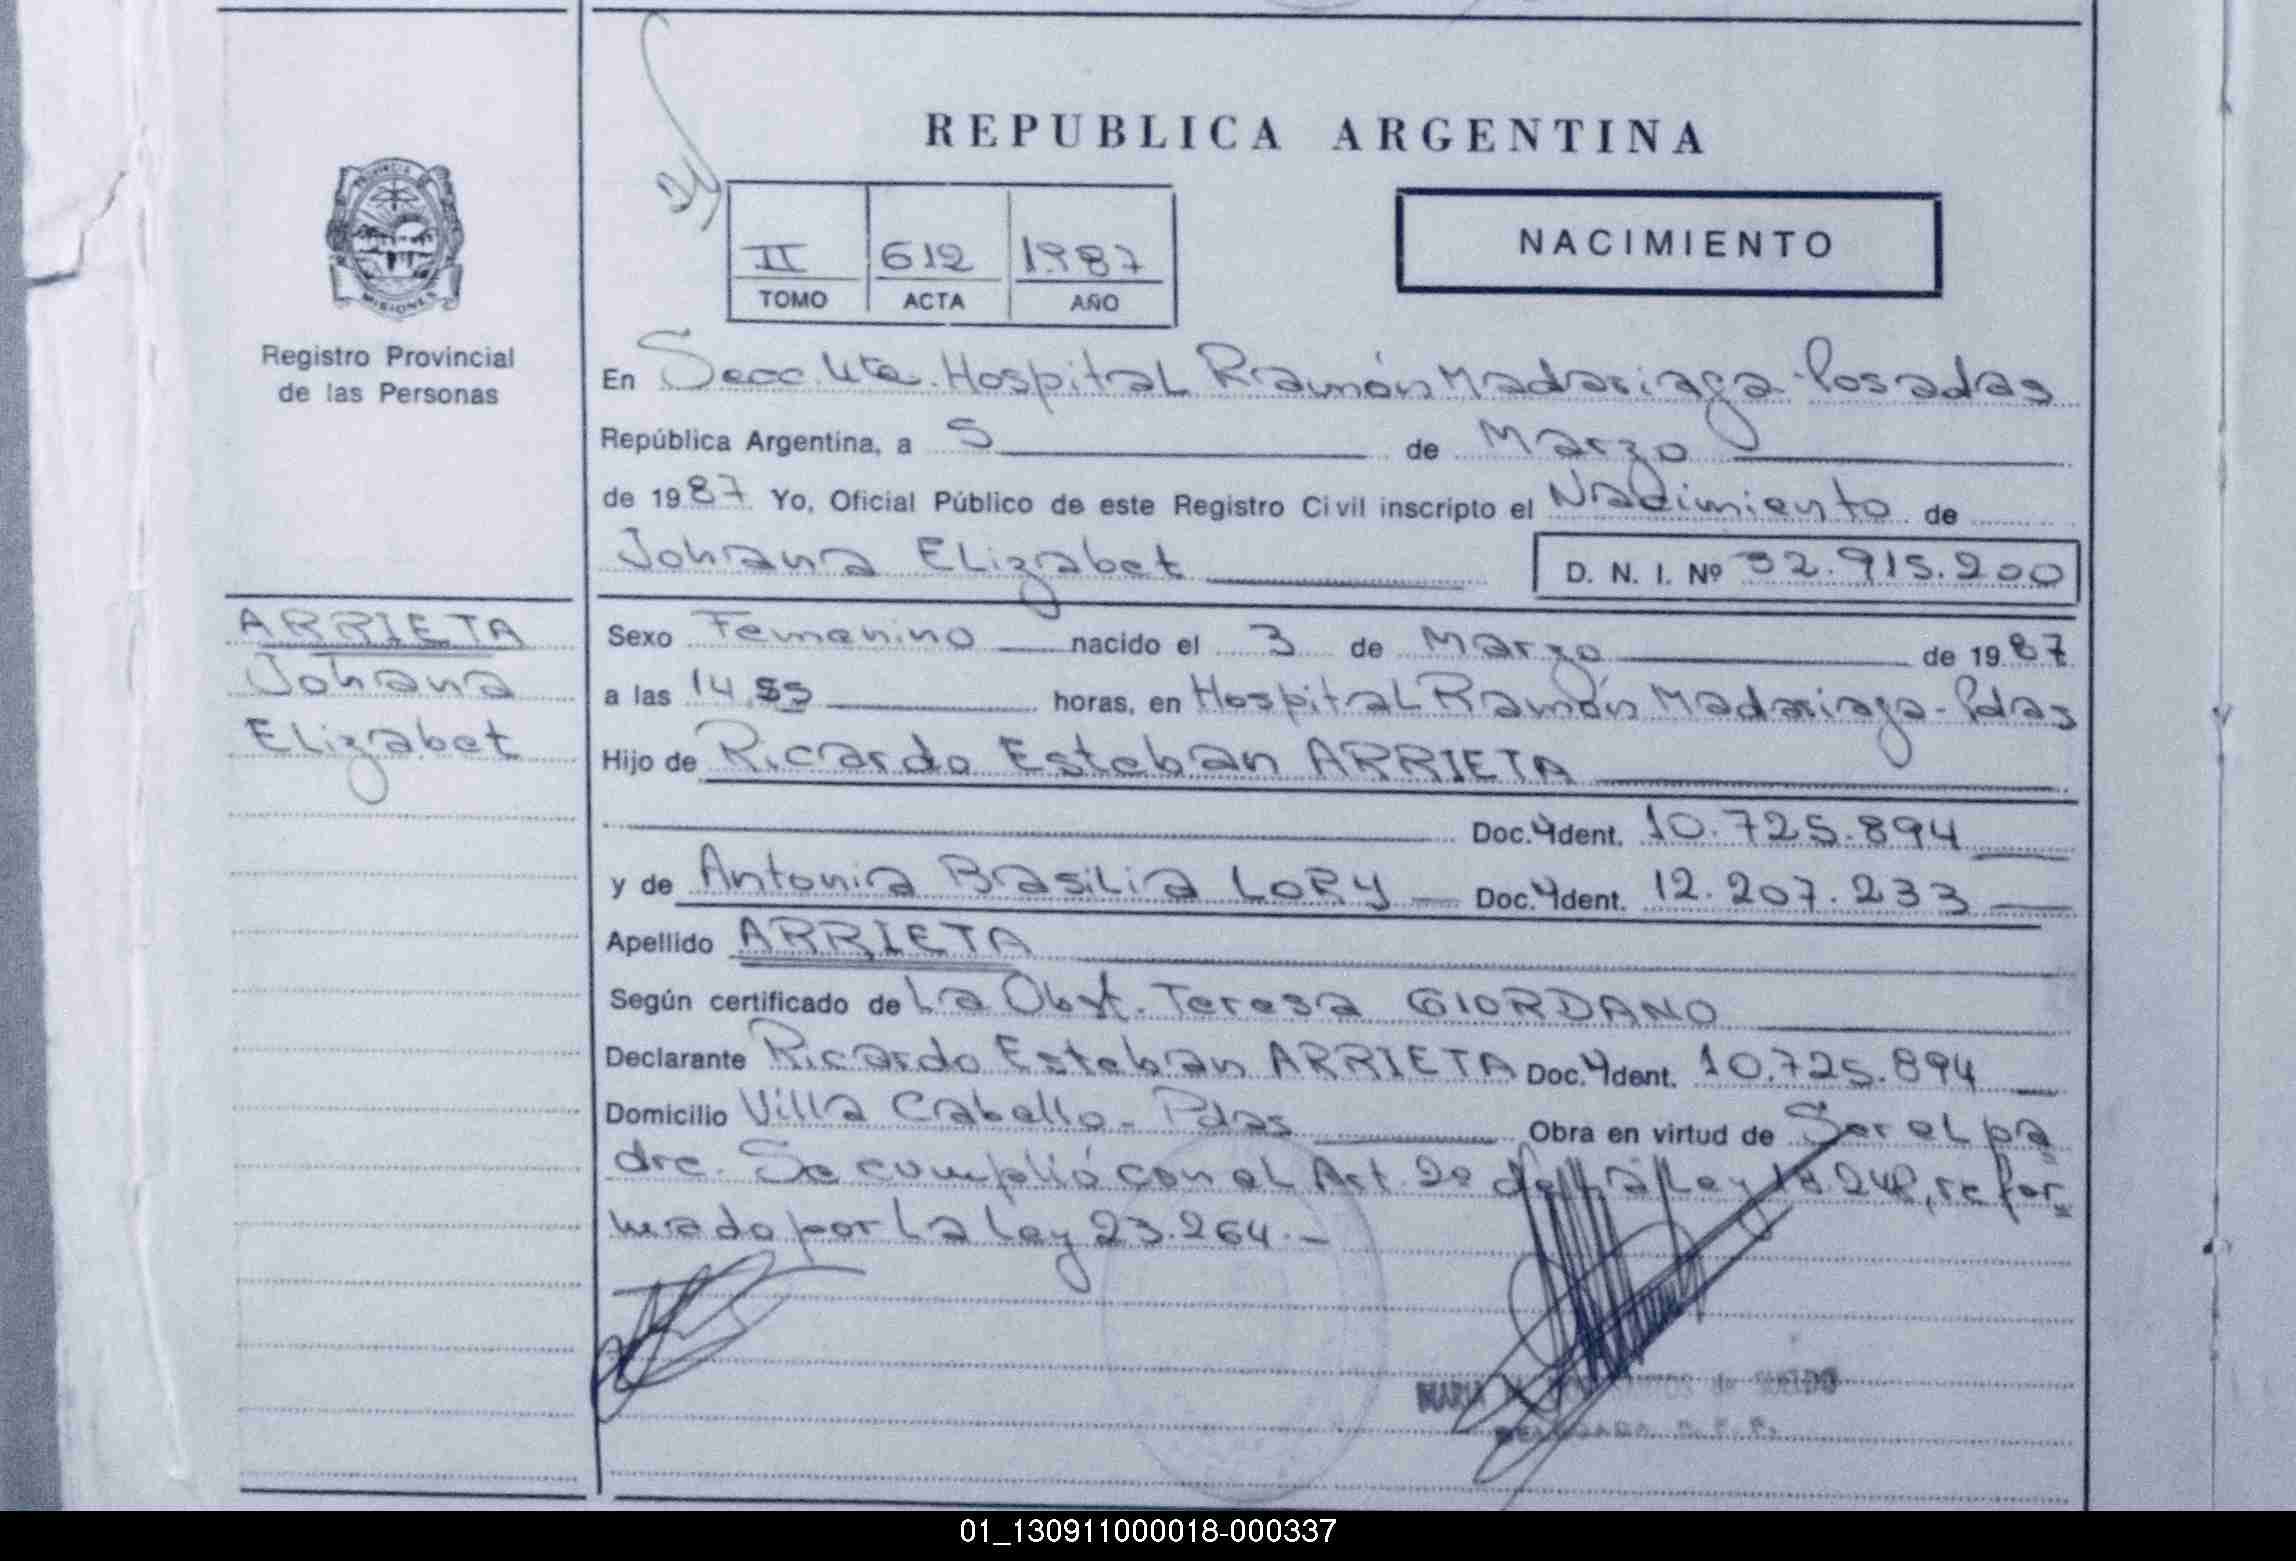 REPUBLICA ARGENTINA
II 612 1987
TOMO ACTA AÑO
NACIMIENTO
PROVINCIA DE
MISIONES
Registro Provincial
de las Personas
ARRIETA
Johana
Elizabet
En Secc. 4ta. Hospital Ramón Madariaga - Posadas
República Argentina, a 5 de Marzo
de 1987 Yo, Oficial Público de este Registro Civil inscripto el Nacimiento de
Johana Elizabet D. N. I. Nº 32.915.200
Sexo Femenino nacido el 3 de Marzo de 1987
a las 14,55 horas, en Hospital Ramón Madariaga - Pdas
Hijo de Ricardo Esteban ARRIETA
Doc. Ident. 10.725.894
y de Antonia Basilia LORY Doc. Ident. 12.207.233
Apellido ARRIETA
Según certificado de La Obst. Teresa GIORDANO
Declarante Ricardo Esteban ARRIETA Doc. Ident. 10.725.894
Domicilio Villa Cabello - Pdas Obra en virtud de Ser el pa
dre. Se cumplió con el Art. 2º de la Ley 18.248, refor
mado por la Ley 23.264.-
MARIA
01_130911000018-000337